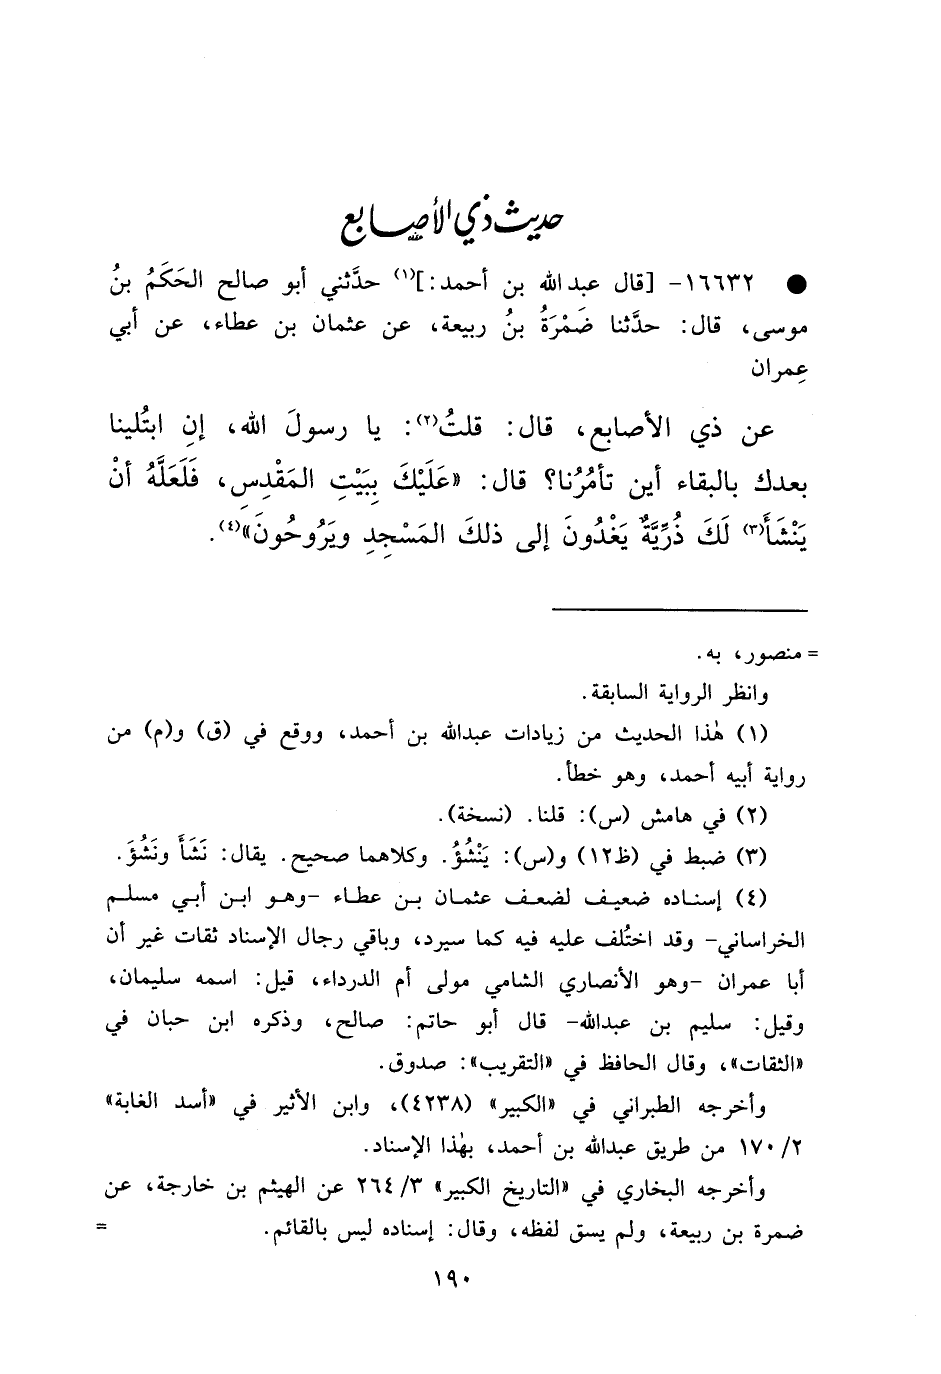 حديث ذي الأصابع
● ١٦٦٣٢- [قال عبد الله بن أحمد:](١) حدَّثني أبو صالح الحَكَمُ بنُ
موسى، قال: حدَّثنا ضَمْرَةُ بنُ ربيعة، عن عثمان بن عطاء، عن أبي
عِمران
عن ذي الأصابع، قال: قلتُ(٢): يا رسولَ الله، إنِ ابتُلينا
بعدك بالبقاء أين تأمُرُنا؟ قال: «عَلَيْكَ بِبَيْتِ المَقْدِسِ، فَلَعَلَّهُ أنْ
يَنْشَأَ(٣) لَكَ ذُرِّيَّةٌ يَغْدُونَ إلى ذلكَ المَسْجِدِ ويَرُوحُونَ»(٤).
= منصور، به.
وانظر الرواية السابقة.
(١) هٰذا الحديث من زيادات عبدالله بن أحمد، ووقع في (ق) و(م) من
رواية أبيه أحمد، وهو خطأ.
(٢) في هامش (س): قلنا. (نسخة).
(٣) ضبط في (ظ١٢) و(س): يَنْشُؤُ. وكلاهما صحيح. يقال: نَشَأَ ونَشُؤَ.
(٤) إسناده ضعيف لضعف عثمان بن عطاء -وهو ابن أبي مسلم
الخراساني- وقد اختُلف عليه فيه كما سيرد، وباقي رجال الإسناد ثقات غير أن
أبا عمران -وهو الأنصاري الشامي مولى أم الدرداء، قيل: اسمه سليمان،
وقيل: سليم بن عبدالله- قال أبو حاتم: صالح، وذكره ابن حبان في
«الثقات»، وقال الحافظ في «التقريب»: صدوق.
وأخرجه الطبراني في «الكبير» (٤٢٣٨)، وابن الأثير في «أسد الغابة»
١٧٠/٢ من طريق عبدالله بن أحمد، بهٰذا الإسناد.
وأخرجه البخاري في «التاريخ الكبير» ٢٦٤/٣ عن الهيثم بن خارجة، عن
ضمرة بن ربيعة، ولم يسق لفظه، وقال: إسناده ليس بالقائم. =
١٩٠